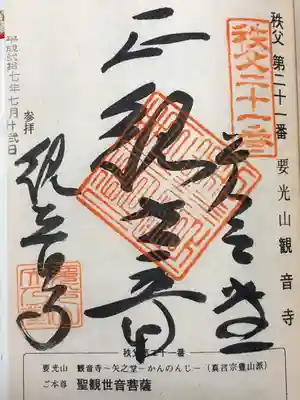 秩父 第二十一番 要光山 観音寺
秩父二十一番
矢之堂
正観世音
参拝
観音寺
平成弐拾七年七月十弐日
秩父第二十一番
要光山 観音寺~矢之堂~かんのんじ~(真言宗豊山派)
ご本尊 聖観世音菩薩